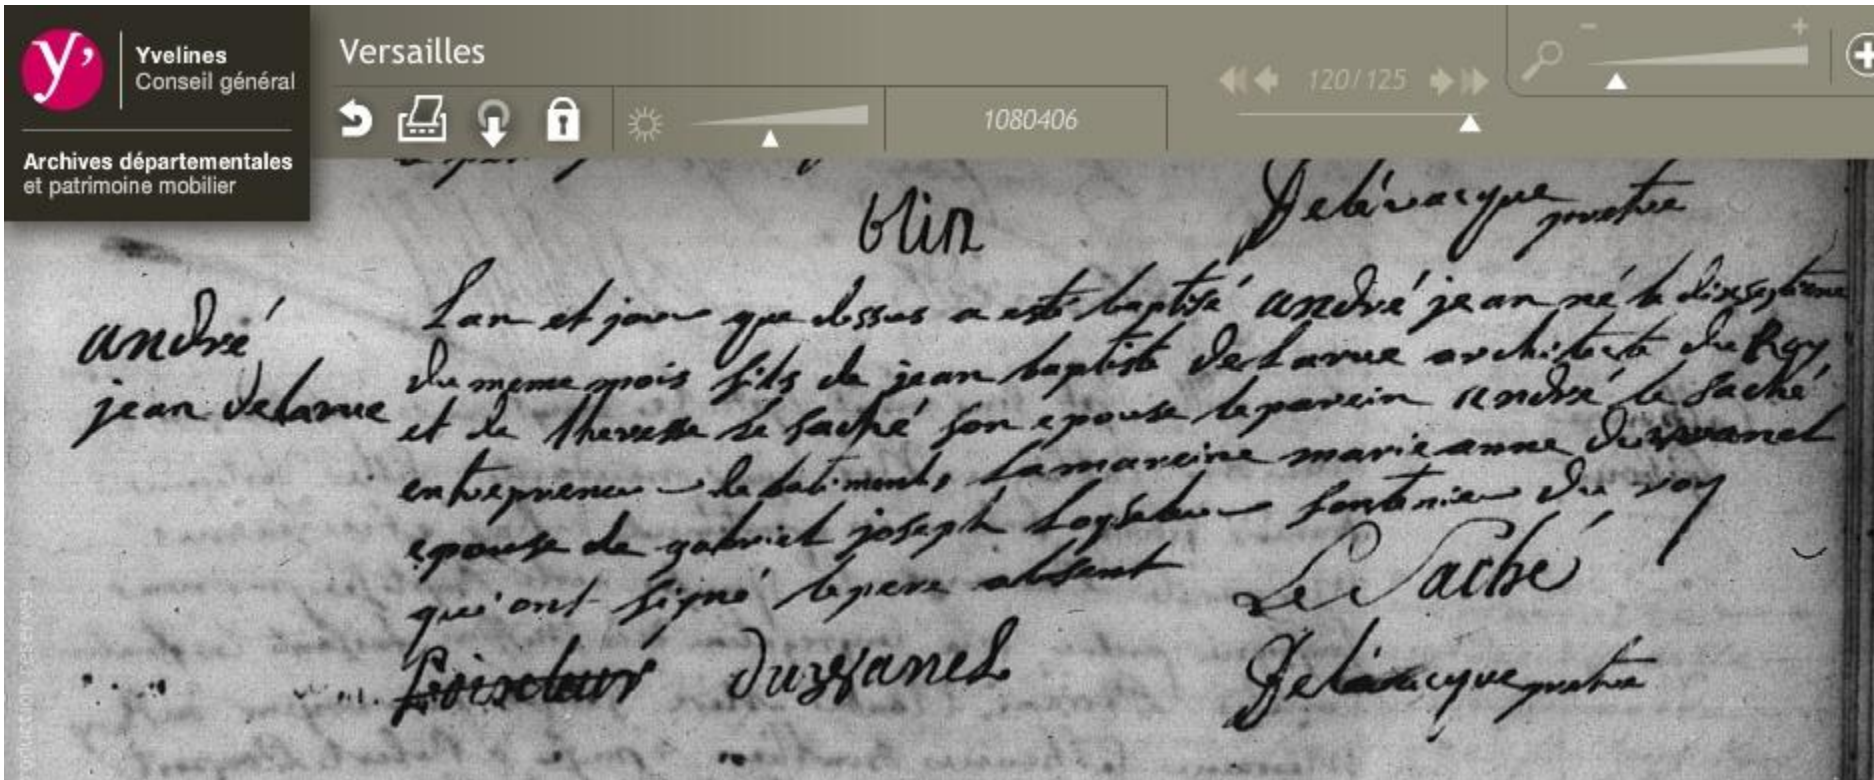 Yvelines
Conseil général
Archives départementales
et patrimoine mobilier
Versailles
120/125
1080406
blin
Delévacque prettre
andré
jean delarue
Lan et jour que dessus a esté baptisé andré jean né le dixseptieme
du meme mois fils de jean baptiste de Larue architecte du Roy
et de theresse le saché son epouse le parein andré le saché
entrepreneur de batiments La mareine marie anne
epouse de gabriel joseph Loyseleur fontenier du roy
qui ont signé le pere absent
Le Saché
Delévacque prettre